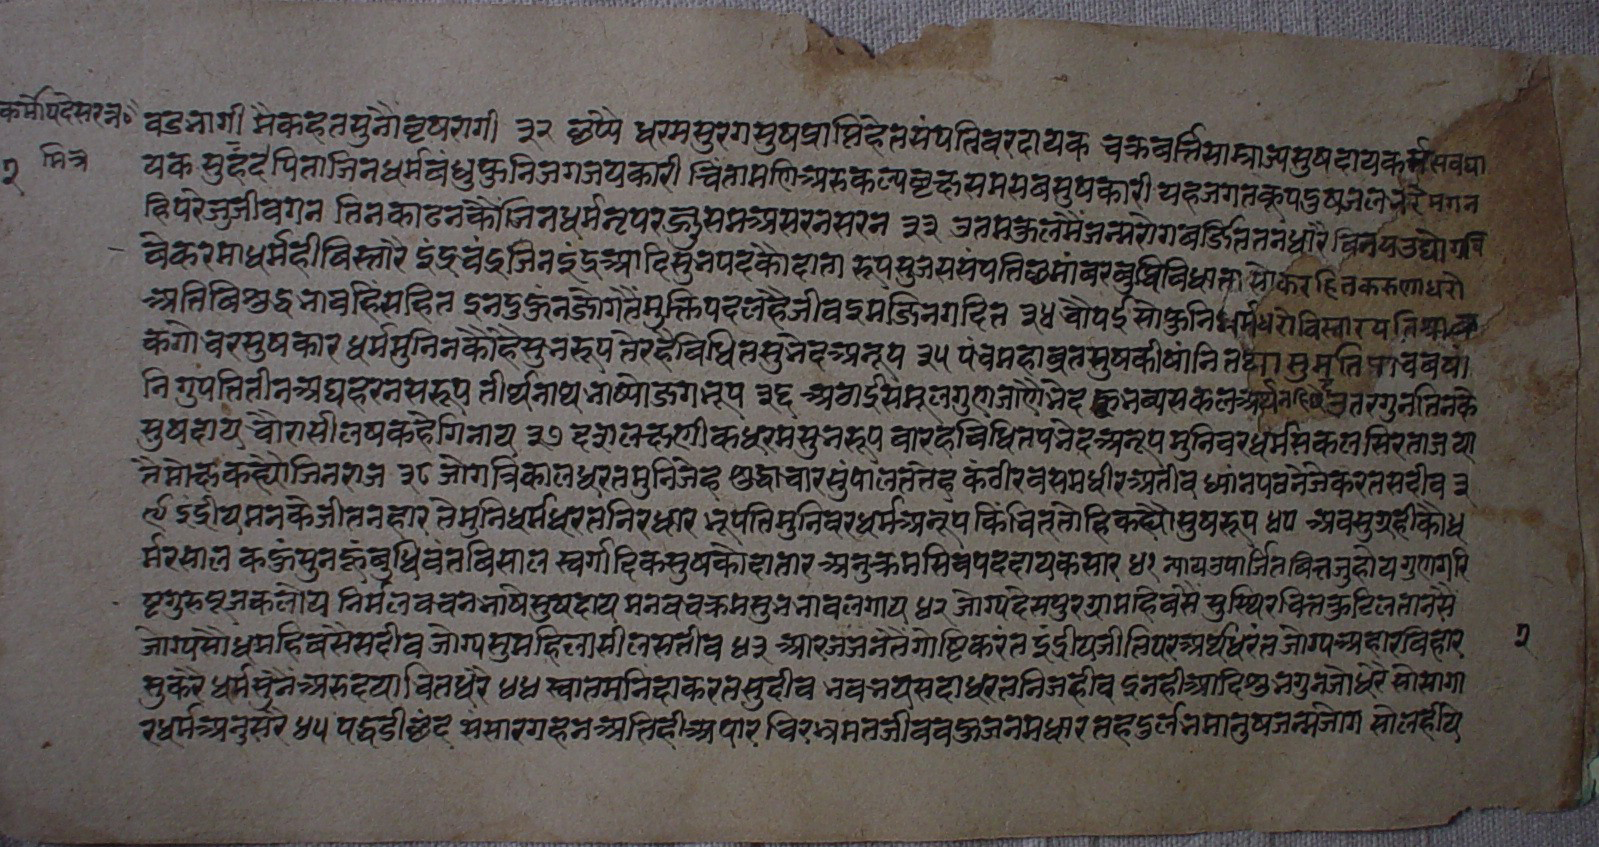 कर्मोपदेसरत्न०
२ मित्र
बडनागी मैकहतसुनौवृषरागी ३२ छप्पै धरमसुरगसुषप्राप्तिहेतसंपतिवरदायक चक्रवर्त्तिसाम्राज्यसुषदायक
यक सुहृदपिताजिनधर्मबंधुफुनिजगजयकारी चिंतामणिअरुकल्पवृक्षसमसबसुषकारी यहजगतकूपदुषजल मगन
हिपरेजुजीवगन तिनकाढनकौजिनधर्मनृपरज्जुसमअसरनसरन ३३ उतमकुललैमैजन्मरोगबर्जिततनधारै विनयउद्योग
वेकरमाधर्महीबिस्तारै इंद्रचंद्रजिनइंद्रआदिसुनपदकौदाता रूपसुजससंपतिछमांबरबुधिविधाता सोकरहितकरुणाधरो
अतिबिशुद्धभावहिसहित इनदुहूंनजोगतैंमुक्तिपदलहैजीवइमजिनगदित ३४ चौपई सोफुनिधर्मधरोविस्तार
कगोचरसुषकार धर्ममुनिनकौहैसुनरूप तेरहविधितसुभेदअनूप ३५ पंचमहाव्रतसुषकीषांनि तथा सुमति
निगुपतितीनअघहरनसरूप तीर्थनाथभाष्योजगभूप ३६ अठाईसमूलगुणजाणै भेद उतरगुनतिनके
सुषदाय चौरासीलषकहैगिनाय ३७ दशलक्षणीकधरमसुनरूप बारहविधितपभेदअनूप मुनिवरधर्मसकलसिरताज या
तैमोक्षकह्यौजिनराज ३८ जोगत्रिकालधरतमुनिजेह शुद्धाचारसुपालततेह कंठीरवसमधीरअतीव ध्यांनपठनजेकरतसदीव ३
९ इंद्रीयमनकैजीतनहार तेमुनिधर्मधरतनिरधार भूपतिमुनिवरधर्मअनूप किंचिततोहिकह्यौसुषरूप ४० अबसुग्रहीकौध
र्मरसाल कहूंसुनहूंबुधिवंतबिसाल स्वर्गादिकसुषकोदातार अनुक्रमसिवपददायकसार ४१ न्यायउपार्जितवित्तजुहोय गुणगरि
ष्टगुरुपूजकलोय निर्मलवचनभाषसुषदाय मनवचक्रमसुभभावलगाय ४२ जोग्यदेसपुरग्रामहिबसै सुस्थिरचित्तकुटिलतानसै
जोग्यसौधमहिबसैसदीव जोग्यसुमहिलासीलसतीव ४३ आरजजनतैगोष्टिकरंत इंद्रीयजीतिपरअर्थधरंत जोग्यअहारविहार
सुकरै धर्मसुनैअरुदयाचितधरै ४४ स्वातमनिंदाकरतसुदीव भवभयसदाधरतनिजहीव इनहीआदिशुभगुनजोधरै सोसागा
रधर्मअनुसरै ४५ पद्धडीछंद संसारगहनअतिहीअपार चिरभ्रमतजीवबहुजनमधार तहदुर्लभमानुषजन्मजोग सोलहैपि
२